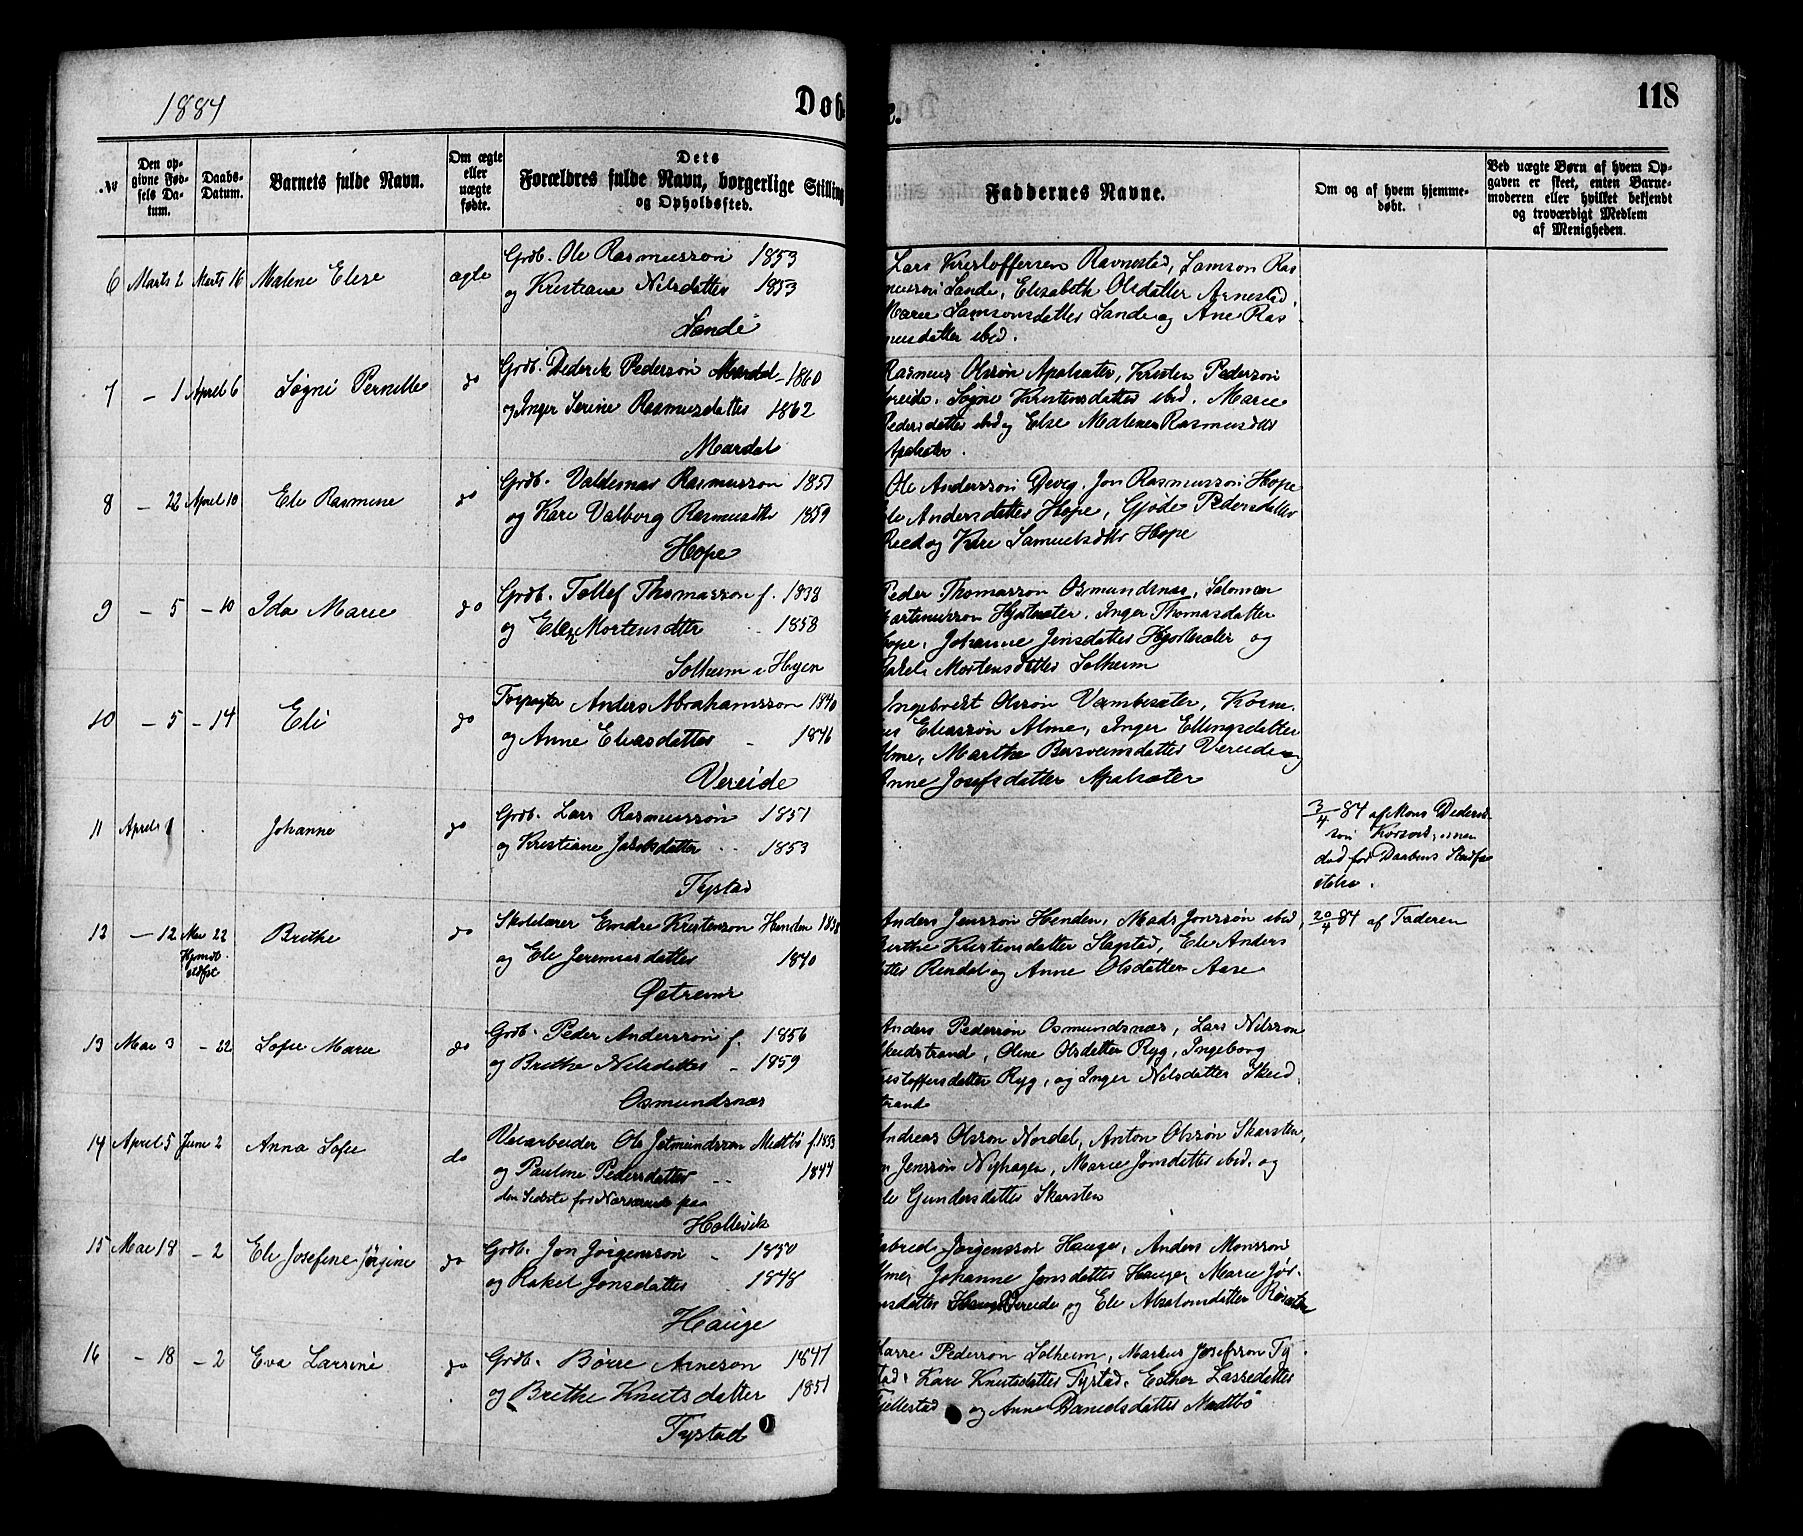 1884
Døb
e.
118
No
Den op-
givne Fød-
sels Da-
tum.
Daabs-
Datum.
Barnets fulde Navn.
Om ægte
eller
uægte
fødte.
Dets
Forældres fulde Navn, borgerlige Stilling
og Opholdssted.
Faddernes Navne.
Om og af hvem hjemme-
døbt.
Ved uægte Børn af hvem Op-
gaven er skeet, enten Barne-
moderen eller hvilket bekjendt
og troværdigt Medlem
af Menigheden.
6 Marts 2 Marts 16 Malene Elise ægte
Grdb. Ole Rasmussøn 1853
og Kristiane Nilsdatter 1853
Sande
Lars Kristoffersen Ravnestad, Samson Ras
mussøn Sande, Elisabeth Olsdatter Arnestad,
Marie Samsonsdatter Sande og Ane Ras
musdatter ibid.
7 – 1 April 6 Søgni Pernille do
Grdb. Diderik Pedersøn Mardal 1860
og Inger Serine Rasmusdatter 1862
Mardal
Rasmus Olssøn Apalsæter, Kristen Pedersøn
Vereide, Søgne Kristensdatter ibid, Marie
Pedersdatter ibid og Else Malene Rasmusdtr
Apalsæter.
8 – 22 April 10 Eli Rasmine do
Grdb. Valdemar Rasmussøn 1851
og Kari Valborg Rasmusdtr 1859
Hope
Ole Anderssøn Gjveg, Jon Rasmussøn Hope
Eli Andersdatter Hope, Gjøde Pedersdatter
Reed og Kari Samuelsdtr Hope
9 – 5 – 10 Ida Marie do
Grdb. Tollef Thomassøn f. 1838
og Elen Mortensdtr 1858
Solheim i Hyen
Peder Thomassøn Osmundsnæs, Salomon
Martinussøn Hjortesæter, Inger Thomasdatter
Hope, Johanne Jensdatter Hjortesæter og
Rakel Mortensdatter Solheim
10 – 5 – 14 Eli do
Forpagter Anders Abrahamssøn 1840
og Anne Eliasdatter 1846
Vereide
Ingebrigt Olssøn Vambesæter, Korne-
lius Eliassøn Alme, Inger Ellingsdatter
Alme, Marthe Bersveinsdatter Vereide og
Anne Josefsdatter Apalsæter
11 April 1 Johanne do
Grdb. Lars Rasmussøn 1851
og Kristiane Jakobsdatter 1853
Tystad
3/4 84 af Mons Diderik
søn, men
død før Daabens Stadfæ
stelse.
12 – 12 Mai 22 Brithe do
Hjemdb.
stdfst
Skolelærer Endre Kristensøn Henden 1838
og Eli Jeremiasdatter 1840
Østrems
Anders Jenssøn Henden, Mads Jonssøn ibid,
Berthe Kristiansdatter Slagstad, Eli Anders
datter Rendal og Anne Olsdatter Aase
20/4 84 af Faderen
13 Mai 3 – 22 Sofie Marie do
Grdb. Peder Anderssøn f. 1856
og Brithe Nilsdatter 1859
Osmundsnæs
Anders Pedersøn Osmundsnæs, Lars Nilssøn
Skeidstrand, Oline Olsdatter Ryg, Ingeborg
Kristoffersdatter Ryg, og Inger Nilsdatter Skeid
strand
14 April 5 Juni 2 Anna Sofie do
Veiarbeider Ole Jetmundssøn Medtbø f. 1853
og Pauline Pedersdatter 1847
den Sidste for Nærværende paa
Hollevik
Andreas Olssøn Nordal, Anton Olssøn Skarsten,
Jenssøn Nyhagen, Marie Jonsdatter ibid, og
Gundersdatter Skarsten
15 Mai 18 – 2 Eli Josefine Jørgine do
Grdb. Jon Jørgenssøn 1850
og Rakel Jonsdatter 1848
Hauge
Gabriel Jørgenssøn Hauge, Anders Monssøn
Alme, Johanne Jonsdatter Hauge, Marie Jør-
gensdatter Hauge Vereide, og Eli Absalonsdatter
16 – 18 – 2 Eva Larsine do
Grdb. Børre Arnesøn 1847
og Brithe Knutsdatter 1851
Tystad
Pedersøn Solheim, Markus Josefssøn Ty-
stad, Kari Knutsdatter Tystad, Esther Lassedatter
Fjellestad og Anne Danielsdatter Medtbø